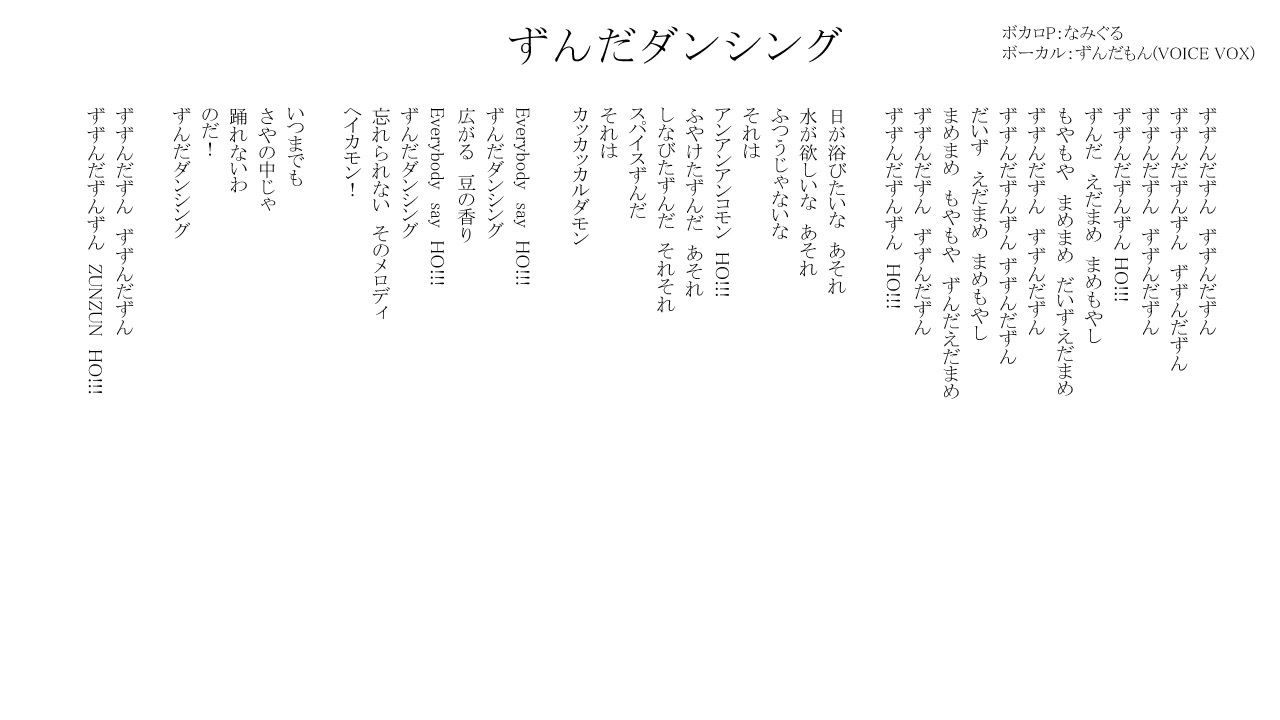 ずんだダンシング
ボカロP：なみぐる
ボーカル：ずんだもん(VOICE VOX)
ずずんだずん　ずずんだずん
ずずんだずんずん　ずずんだずん
ずずんだずん　ずずんだずん
ずずんだずんずん HO!!!
ずんだ　えだまめ　まめもやし
もやもや　まめまめ　だいずえだまめ
ずずんだずん　ずずんだずん
ずずんだずんずん ずずんだずん
だいず　えだまめ　まめもやし
まめまめ　もやもや　ずんだえだまめ
ずずんだずん　ずずんだずん
ずずんだずんずん　HO!!!
日が浴びたいな　あそれ
水が欲しいな　あそれ
ふつうじゃないな
それは
アンアンアンコモン　HO!!!
ふやけたずんだ　あそれ
しなびたずんだ　それそれ
スパイスずんだ
それは
カッカッカルダモン
Everybody　say　HO!!!
ずんだダンシング
広がる　豆の香り
Everybody　say　HO!!!
ずんだダンシング
忘れられない　そのメロディ
ヘイカモン！
いつまでも
さやの中じゃ
踊れないわ
のだ！
ずんだダンシング
ずずんだずん　ずずんだずん
ずずんだずんずん　ZUNZUN　HO!!!